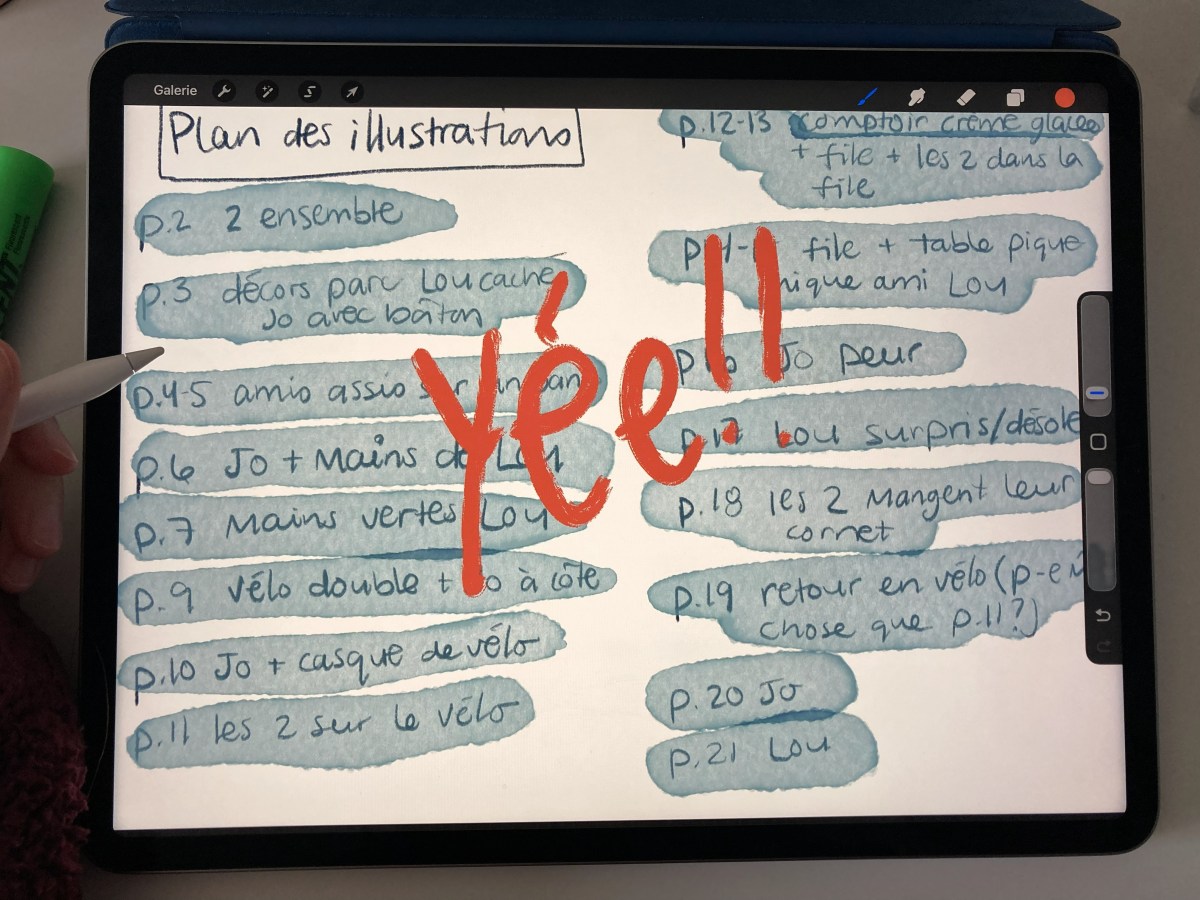 Galerie
Plan des illustrations
p.2 2 ensemble
p.3 décors parc Lou caché
Jo avec bâton
p.4-5 amis assis sur un banc
p.6 Jo + Mains de Lou
p.7 Mains vertes Lou
p.9 vélo double à côté
p.10 Jo + casque de vélo
p.11 les 2 sur le vélo
p.12-13 comptoir crème glacée
+ file + les 2 dans la
file
file + table pique
nique ami Lou
Jo peur
p.17 Lou surpris/désolé
p.18 les 2 Mangent leur
cornet
p.19 retour en vélo (p-e
chose que p.11?)
p.20 Jo
p.21 Lou
yée!!